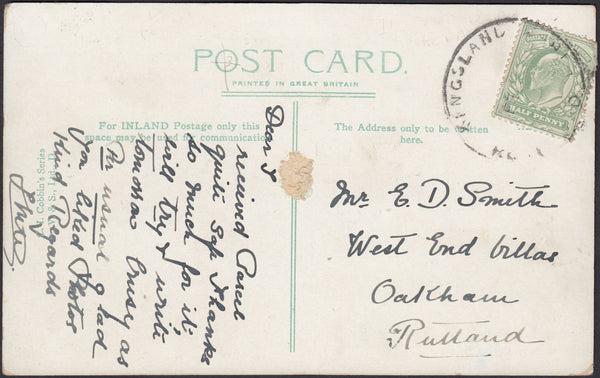 POST CARD.
PRINTED IN GREAT BRITAIN
For INLAND Postage only this
space may be used for communication
The Address only to be written
here.
KINGSLAND
HALF PENNY
Dear
received Parcel
quite safe Thanks
so much for it
will try & write
tomorrow busy as
usual glad
you liked Photos
Kind Regards
Mr E. D. Smith
West End Villas
Oakham
Rutland
Cobbin's Series